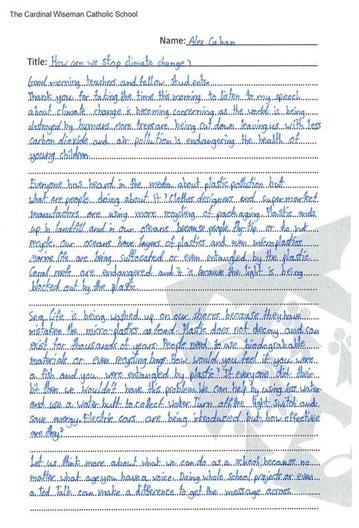 The Cardinal Wiseman Catholic School
Name: Alex Caban
Title: How can we stop climate change?
Good morning teachers and fellow students
Thank you for taking the time this morning to listen to my speech
about climate change is becoming concerning as the world is being
destroyed by humans. more trees are being cut down leaving us with less
carbon dioxide and air pollution is endangering the health of
young children.
Everyone has heard in the media about plastic pollution but
what are people doing about it? Clothes designers and supermarket
manufactures are using more recycling of packaging. Plastic ends
up in landfill and in our oceans because people fly-tip or do not
recycle. Our oceans have layers of plastics and even microplastics.
Marine life are being suffocated or even entangled by the plastic.
Coral reefs are endangered and it is because the light is being
blocked out by the plastic.
Sea life is being washed up on our shores because they have
mistaken the micro-plastics as food. Plastic does not decay and can
exist for thousands of years. People need to use biodegradable
materials or even recycling bags. How would you feel if you were
a fish and you were entangled by plastic? If everyone did their
bit then we wouldn't have this problem. We can help by using less water
and use a water butt to collect water. Turn off the light switch and
save energy. Electric cars are being introduced but how effective
are they?
Let us think more about what we can do as a school because no
matter what age you have a voice. Doing whole school projects or even
a Ted Talk can make a difference to get the message across.